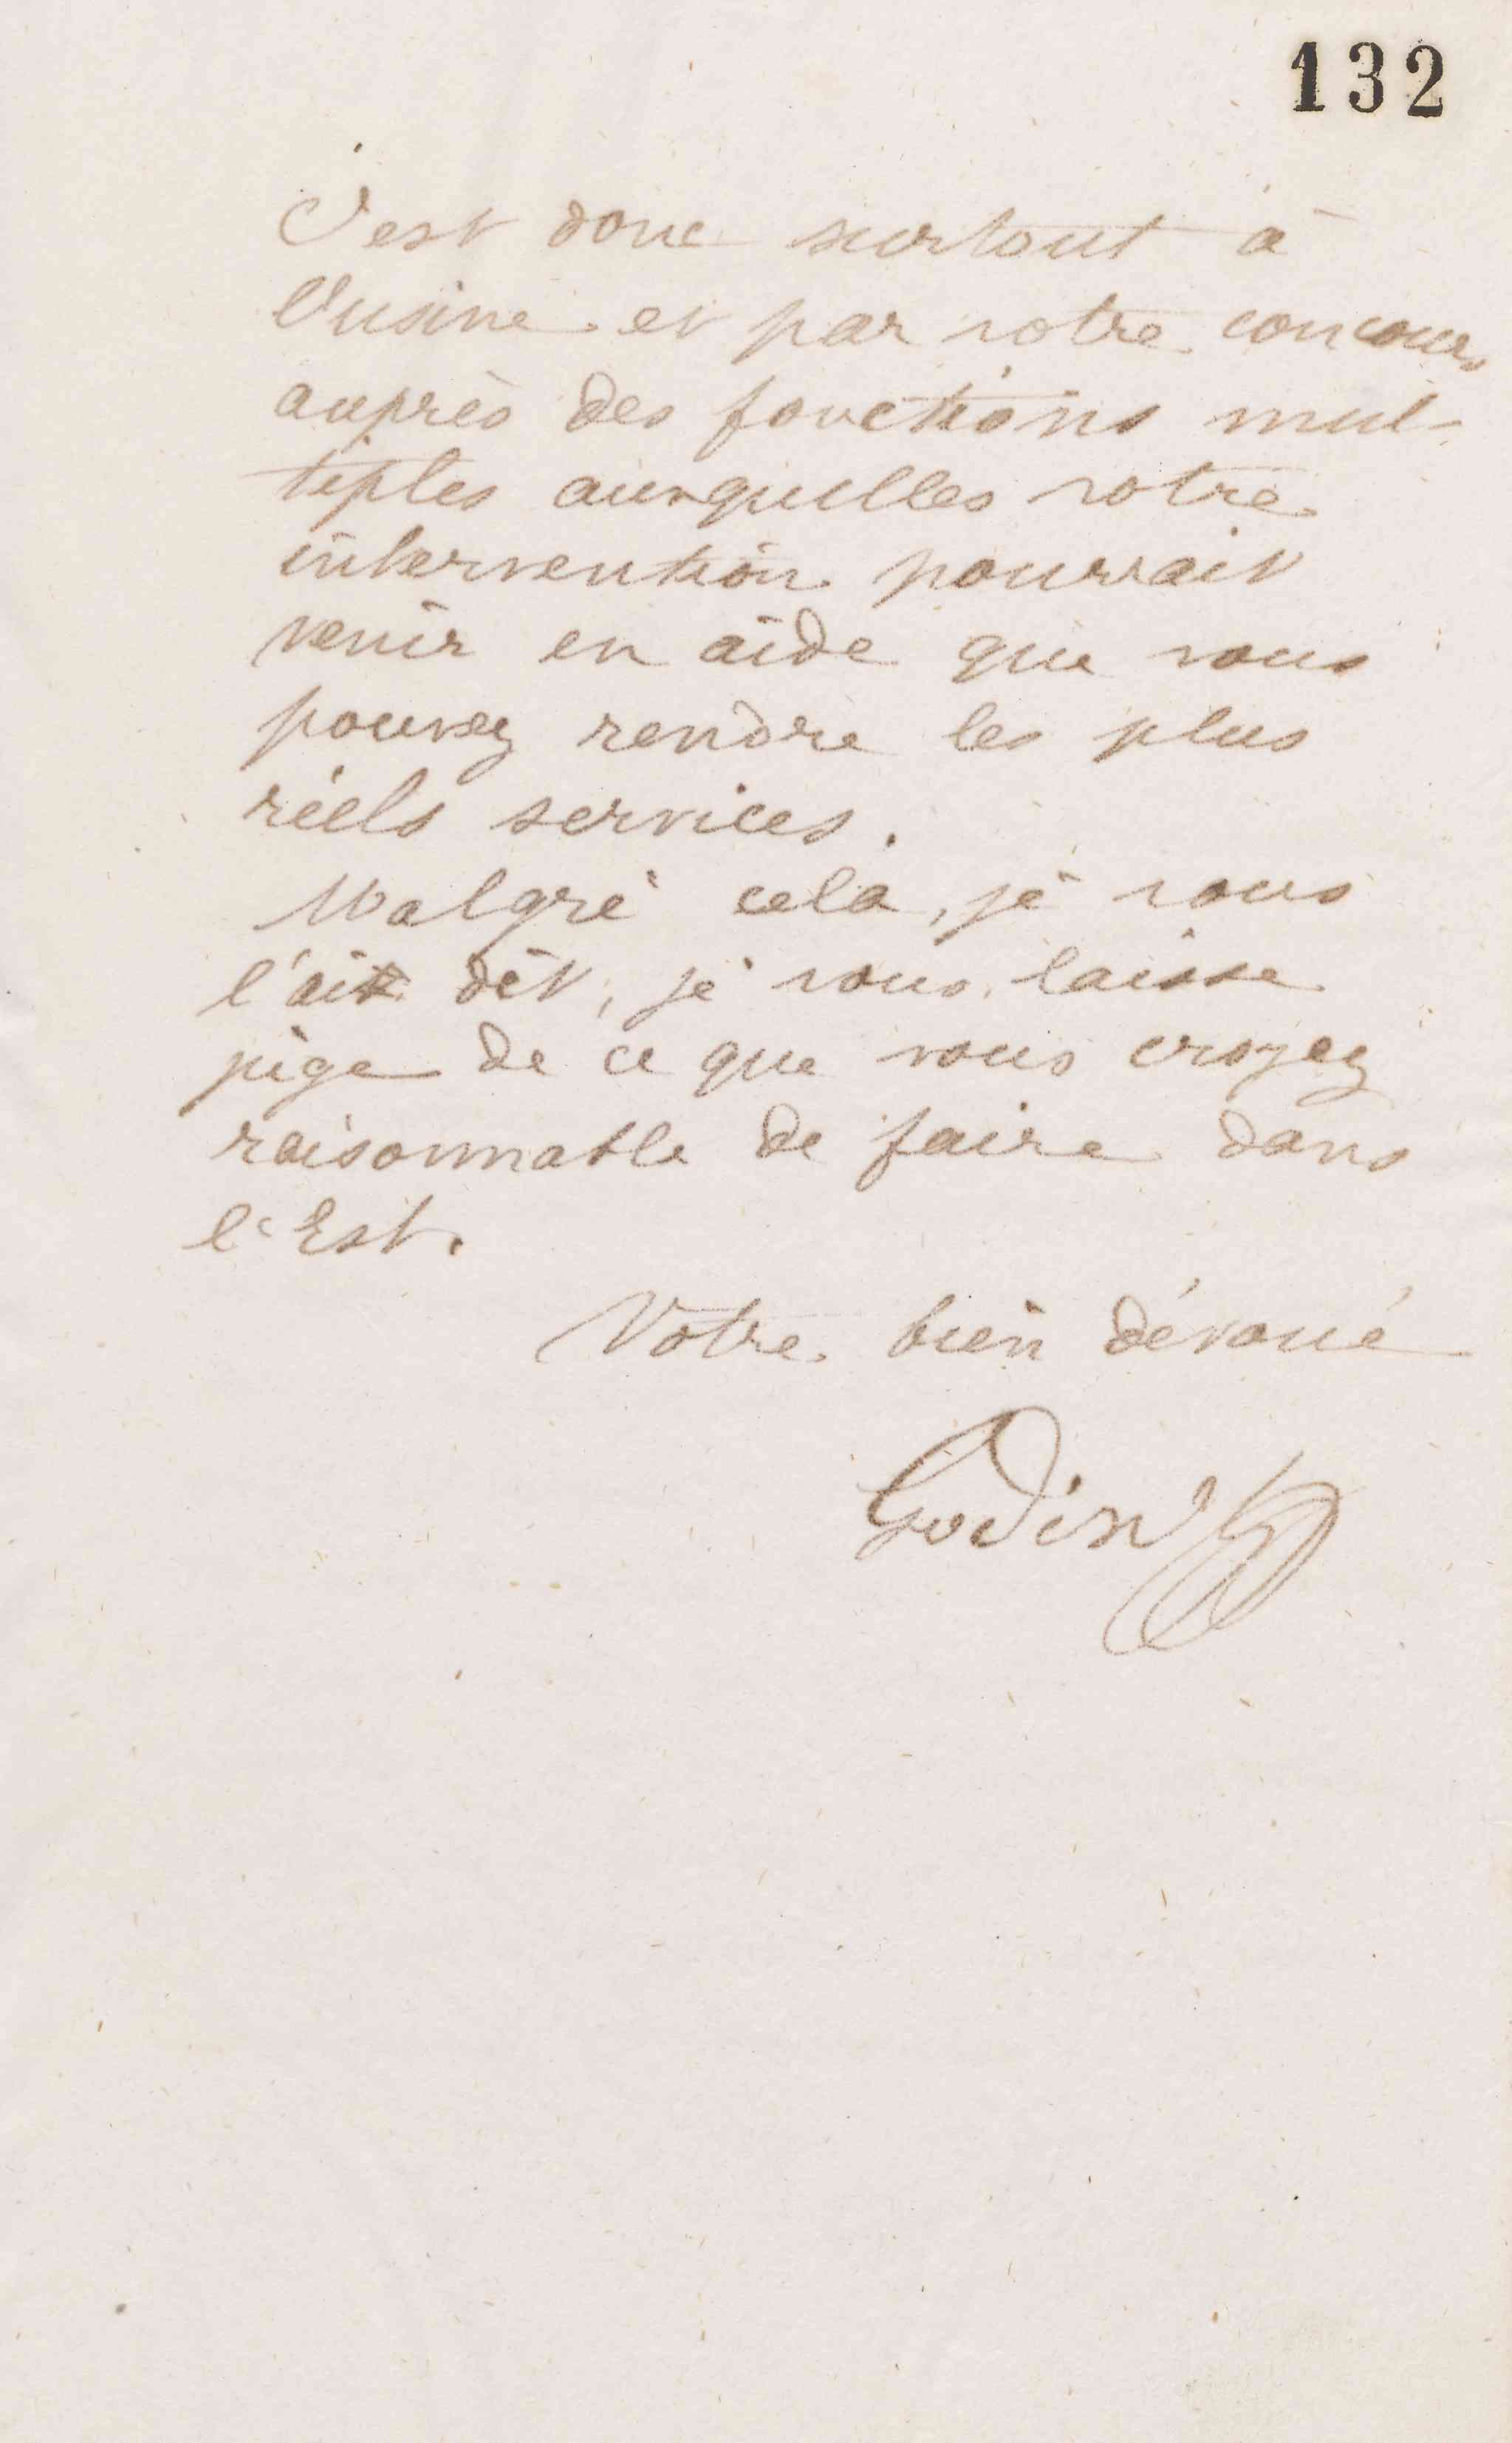 132
C'est donc surtout à
l'usine et par votre concours
auprès des fonctions mul-
tiples auxquelles votre
intervention pourrait
venir en aide que vous
pouvez rendre les plus
réels services.
Malgré cela, je vous
l'ai dit, je vous laisse
juge de ce que vous croyez
raisonnable de faire dans
l'Est.
Votre bien dévoué
Godin